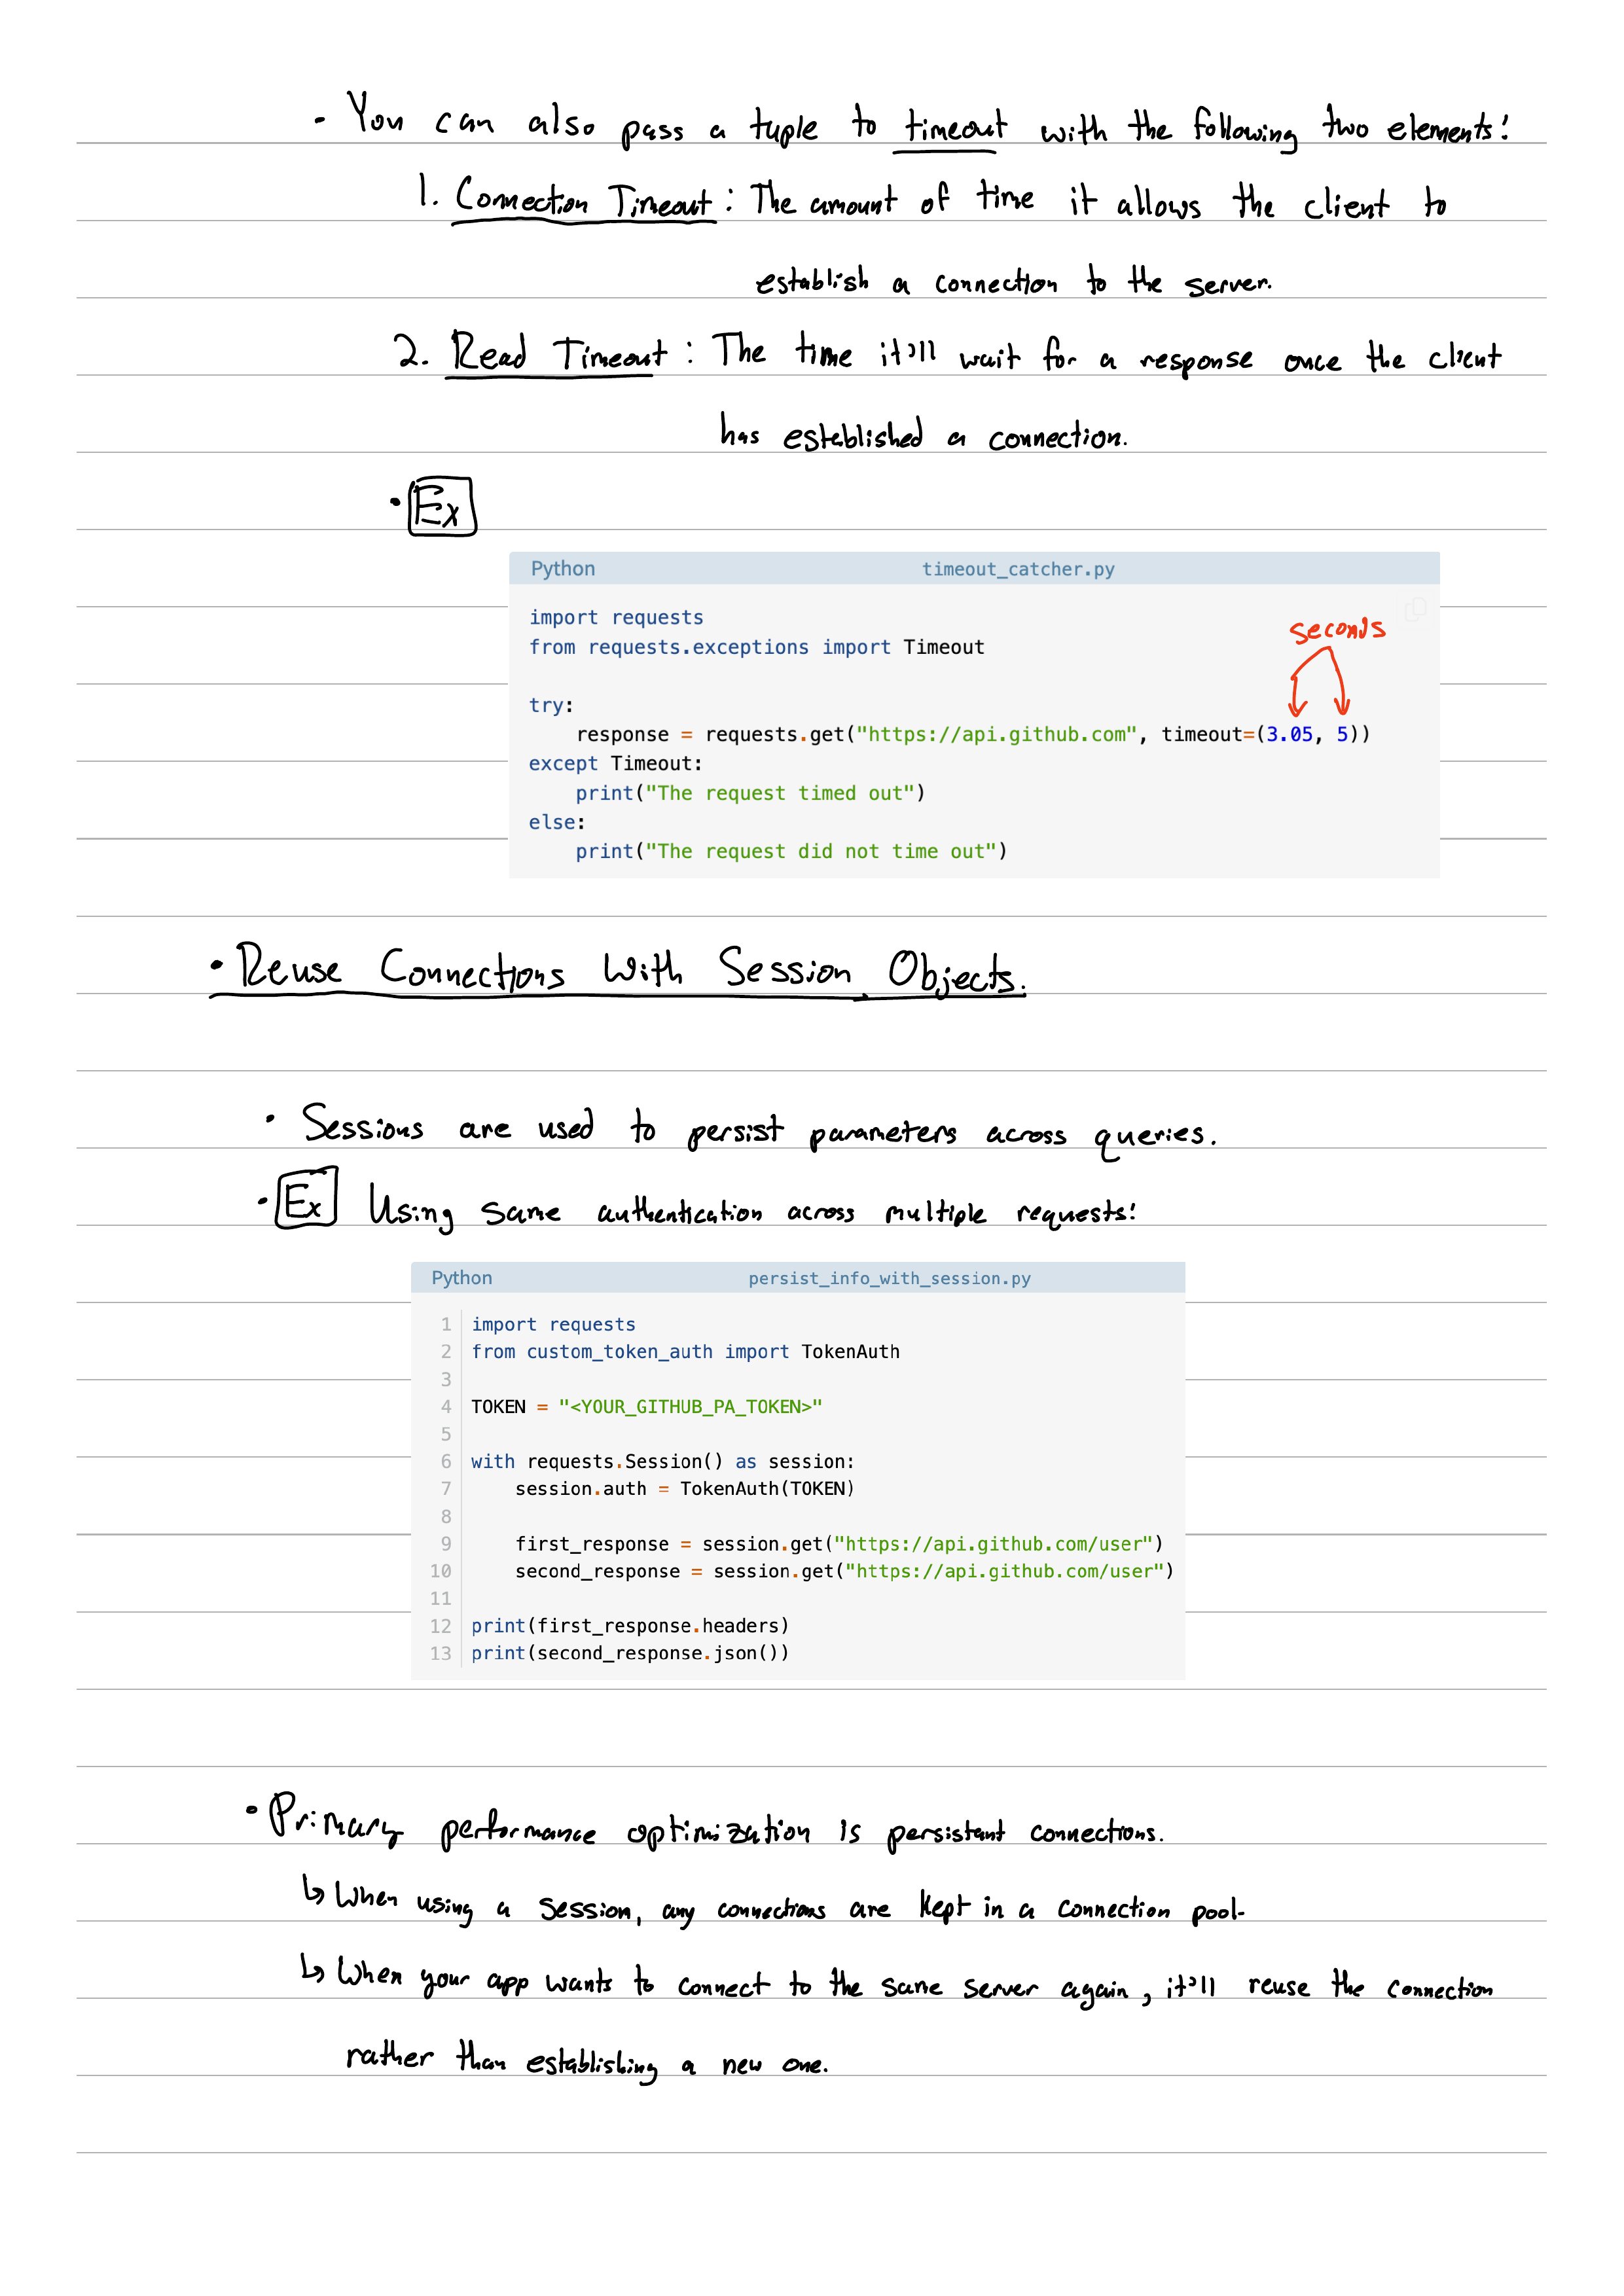 • You can also pass a tuple to timeout with the following two elements:
1. Connection Timeout : The amount of time it allows the client to
establish a connection to the server.
2. Read Timeout : The time it'll wait for a response once the client
has established a connection.
• Ex
Python timeout_catcher.py
import requests
from requests.exceptions import Timeout
seconds
try:
    response = requests.get("https://api.github.com", timeout=(3.05, 5))
except Timeout:
    print("The request timed out")
else:
    print("The request did not time out")
• Reuse Connections With Session Objects.
• Sessions are used to persist parameters across queries.
• Ex Using same authentication across multiple requests:
Python persist_info_with_session.py
1 import requests
2 from custom_token_auth import TokenAuth
3
4 TOKEN = "<YOUR_GITHUB_PA_TOKEN>"
5
6 with requests.Session() as session:
7     session.auth = TokenAuth(TOKEN)
8
9     first_response = session.get("https://api.github.com/user")
10     second_response = session.get("https://api.github.com/user")
11
12 print(first_response.headers)
13 print(second_response.json())
• Primary performance optimization is persistant connections.
↳ When using a session, any connections are kept in a connection pool.
↳ When your app wants to connect to the same server again, it'll reuse the connection
rather than establishing a new one.